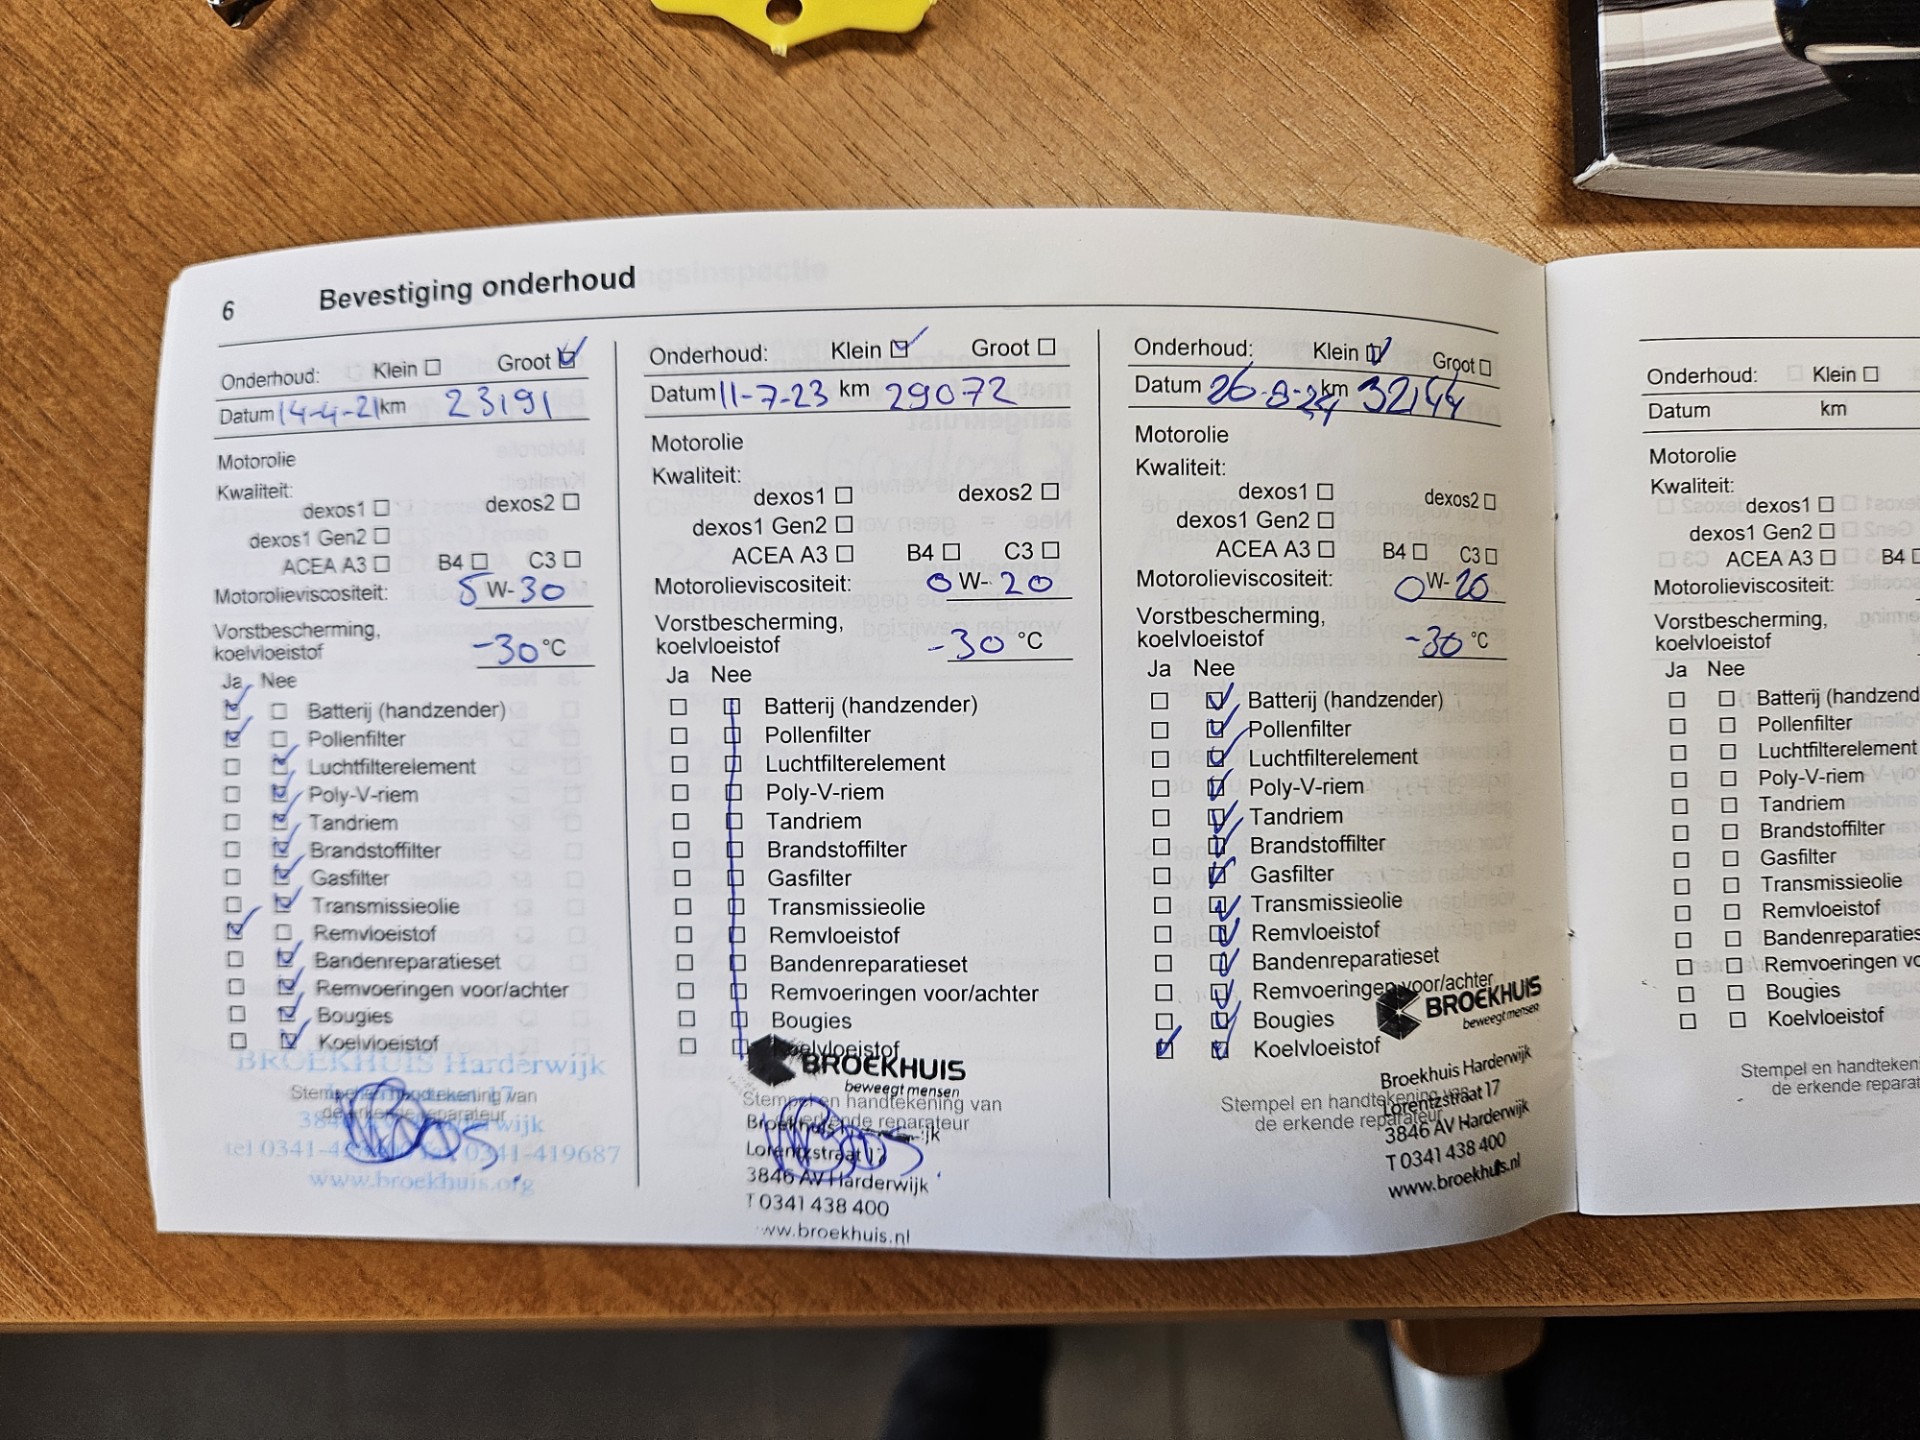 6 Bevestiging onderhoud
Onderhoud: Klein Groot
Datum 14-4-21 km 23191
Motorolie
Kwaliteit:
dexos1 dexos2
dexos1 Gen2
ACEA A3 B4 C3
Motorolieviscositeit: 5 W-30
Vorstbescherming,
koelvloeistof -30 °C
Ja Nee
Batterij (handzender)
Pollenfilter
Luchtfilterelement
Poly-V-riem
Tandriem
Brandstoffilter
Gasfilter
Transmissieolie
Remvloeistof
Bandenreparatieset
Remvoeringen voor/achter
Bougies
Koelvloeistof
BROEKHUIS Harderwijk
Stempel en handtekening van
de erkende reparateur
www.broekhuis.org
Onderhoud: Klein Groot
Datum 11-7-23 km 29072
Motorolie
Kwaliteit:
dexos1 dexos2
dexos1 Gen2
ACEA A3 B4 C3
Motorolieviscositeit: 0 W-20
Vorstbescherming,
koelvloeistof -30 °C
Ja Nee
Batterij (handzender)
Pollenfilter
Luchtfilterelement
Poly-V-riem
Tandriem
Brandstoffilter
Gasfilter
Transmissieolie
Remvloeistof
Bandenreparatieset
Remvoeringen voor/achter
Bougies
Koelvloeistof
BROEKHUIS
beweegt mensen
Stempel en handtekening van
de erkende reparateur
Lorentzstraat 17
3846 AV Harderwijk
T 0341 438 400
www.broekhuis.nl
Onderhoud: Klein Groot
Datum 26-8-24 km 32144
Motorolie
Kwaliteit:
dexos1 dexos2
dexos1 Gen2
ACEA A3 B4 C3
Motorolieviscositeit: 0 W-20
Vorstbescherming,
koelvloeistof -30 °C
Ja Nee
Batterij (handzender)
Pollenfilter
Luchtfilterelement
Poly-V-riem
Tandriem
Brandstoffilter
Gasfilter
Transmissieolie
Remvloeistof
Bandenreparatieset
Remvoeringen voor/achter
Bougies
Koelvloeistof
BROEKHUIS
beweegt mensen
Stempel en handtekening van
de erkende reparateur
Broekhuis Harderwijk
Lorentzstraat 17
3846 AV Harderwijk
T 0341 438 400
www.broekhuis.nl
Onderhoud: Klein
Datum km
Motorolie
Kwaliteit:
dexos1
dexos1 Gen2
ACEA A3 B4
Motorolieviscositeit:
Vorstbescherming,
koelvloeistof
Ja Nee
Batterij (handzend
Pollenfilter
Luchtfilterelement
Poly-V-riem
Tandriem
Brandstoffilter
Gasfilter
Transmissieolie
Remvloeistof
Bandenreparaties
Remvoeringen vo
Bougies
Koelvloeistof
Stempel en handtekening
de erkende reparat